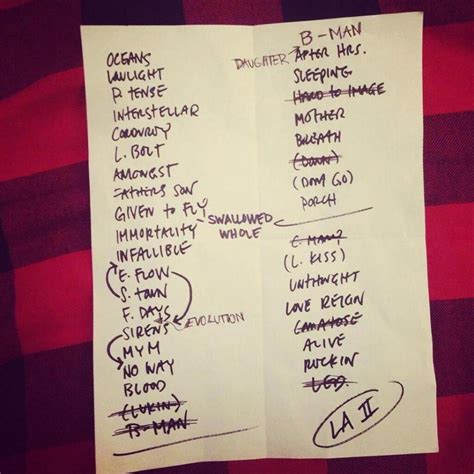 OCEANS
LOWLIGHT
P. TENSE
INTERSTELLAR
CORDUROY
L. BOLT
AMONGST
FATHERS SON
GIVEN TO FLY
IMMORTALITY
SWALLOWED
WHOLE
INFALLIBLE
E. FLOW
S. TOWN
F. DAYS
SIRENS
EVOLUTION
MYM
NO WAY
BLOOD
(LUKIN)
B-MAN
B-MAN
DAUGHTER
AFTER HRS.
SLEEPING
HARD TO IMAGE
MOTHER
BREATH
(DOWN)
(DONT GO)
PORCH
C. MAN?
(L. KISS)
UNTHINGHT
LOVE REIGN
COMATOSE
ALIVE
ROCKIN
LED.
LA II